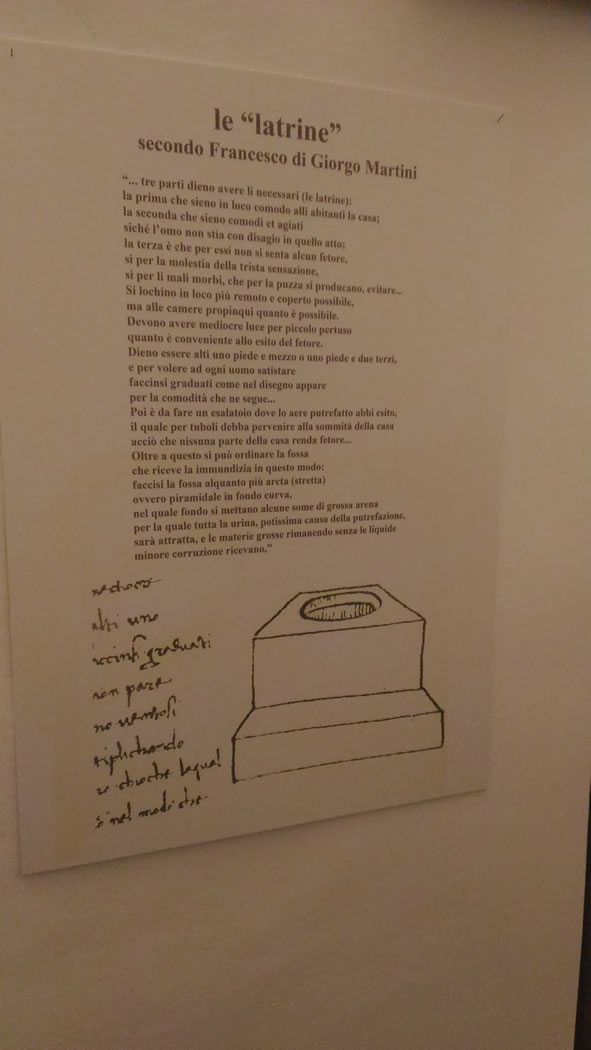 le “latrine”
secondo Francesco di Giorgo Martini
“... tre parti dieno avere li necessari (le latrine):
la prima che sieno in loco comodo alli abitanti la casa;
la seconda che sieno comodi et agiati
siché l'omo non stia con disagio in quello atto;
la terza è che per essi non si senta alcun fetore,
si per la molestia della trista sensazione,
si per li mali morbi, che per la puzza si producano, evitare...
Si lochino in loco più remoto e coperto possibile,
ma alle camere propinqui quanto è possibile.
Devono avere mediocre luce per piccolo pertuso
quanto è conveniente allo esito del fetore.
Dieno essere alti uno piede e mezzo o uno piede e due terzi,
e per volere ad ogni uomo satistare
faccinsi graduati come nel disegno appare
per la comodità che ne segue...
Poi è da fare un esalatoio dove lo aere putrefatto abbi esito,
il quale per tuboli debba pervenire alla sommità della casa
acciò che nissuna parte della casa renda fetore...
Oltre a questo si può ordinare la fossa
che riceve la immundizia in questo modo:
faccisi la fossa alquanto più arcta (stretta)
ovvero piramidale in fondo curva,
nel quale fondo si mettano alcune some di grossa arena
per la quale tutta la urina, potissima causa della putrefazione,
sarà attratta, e le materie grosse rimanendo senza le liquide
minore corruzione ricevano,”
alti uno
graduati
non pare
laqual
nel modo che